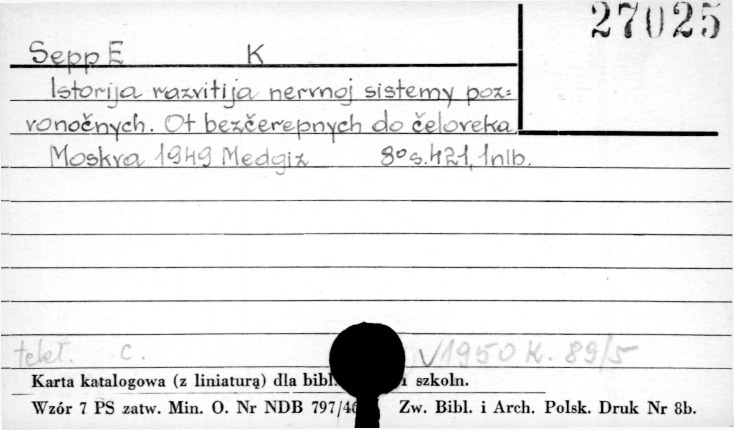 27025
Sepp E K
Istorija razvitija nervnoj sistemy poz=
vonočnych. Ot bezčerepnych do čeloveka
Moskva 1949 Medgiz 8° s. 421, 1nlb.
c. √1950 K. 89/5
Karta katalogowa (z liniaturą) dla bibl. szkoln.
Wzór 7 PS zatw. Min. O. Nr NDB 797/46 Zw. Bibl. i Arch. Polsk. Druk Nr 8b.